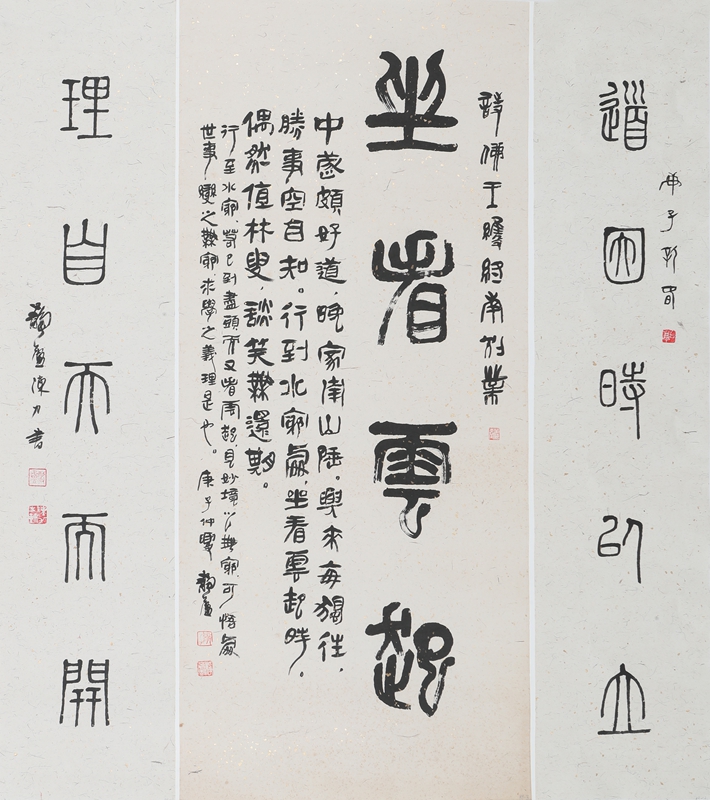 道因時以立
庚子
詩佛王維終南別業
坐看雲起
中歲頗好道晚家南山陲。興來每獨往，
勝事空自知。行到水窮處，坐看雲起時，。
偶然值林叟，談笑無還期。
行至水窮，若已到盡頭，而又看雲起，見妙境之無窮，可悟處
世事變之無窮，求學之義理是也。庚子仲夏 靜廬
理自天而開
靜廬陳力書